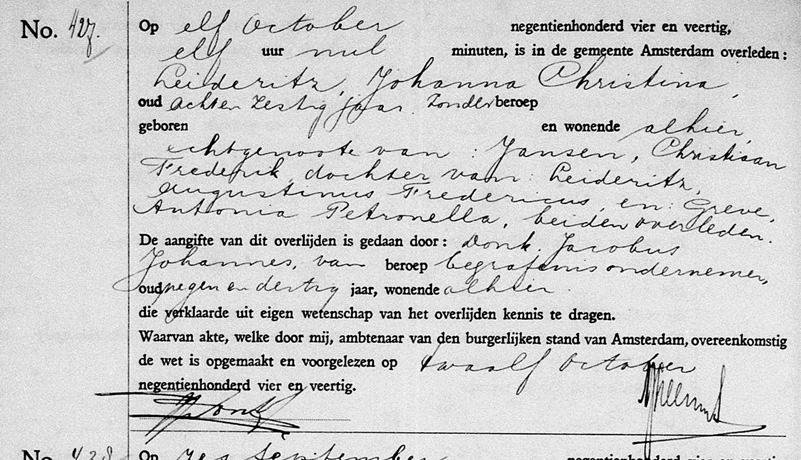 No. 427. Op elf October negentienhonderd vier en veertig,
elf uur nul minuten, is in de gemeente Amsterdam overleden :
Leideritz, Johanna Christina,
oud acht en zestig jaar. Zonder beroep
geboren en wonende alhier,
echtgenoote van : Jansen, Christiaan
Frederik, dochter van : Leideritz,
Augustinus Fredericus, en : Greve,
Antonia Petronella, beiden overleden.
De aangifte van dit overlijden is gedaan door : Donk, Jacobus
Johannes, van beroep begrafenisondernemer,
oud negen en dertig jaar, wonende alhier.
die verklaarde uit eigen wetenschap van het overlijden kennis te dragen.
Waarvan akte, welke door mij, ambtenaar van den burgerlijken stand van Amsterdam, overeenkomstig
de wet is opgemaakt en voorgelezen op twaalf October
negentienhonderd vier en veertig.
No. 428 Op September negentienhonderd vier en veertig,